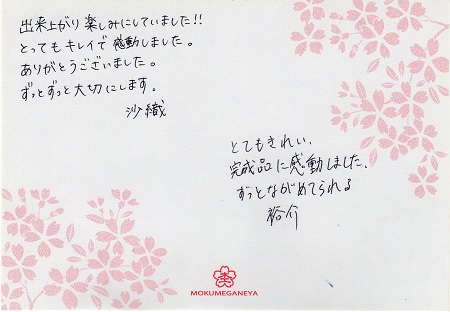 出来上がり楽しみにしていました!!
とってもキレイで感動しました。
ありがとうございました。
ずっとずっと大切にします。
沙織
とてもきれい、
完成品に感動しました、
ずっとながめてられる
裕介
MOKUMEGANEYA